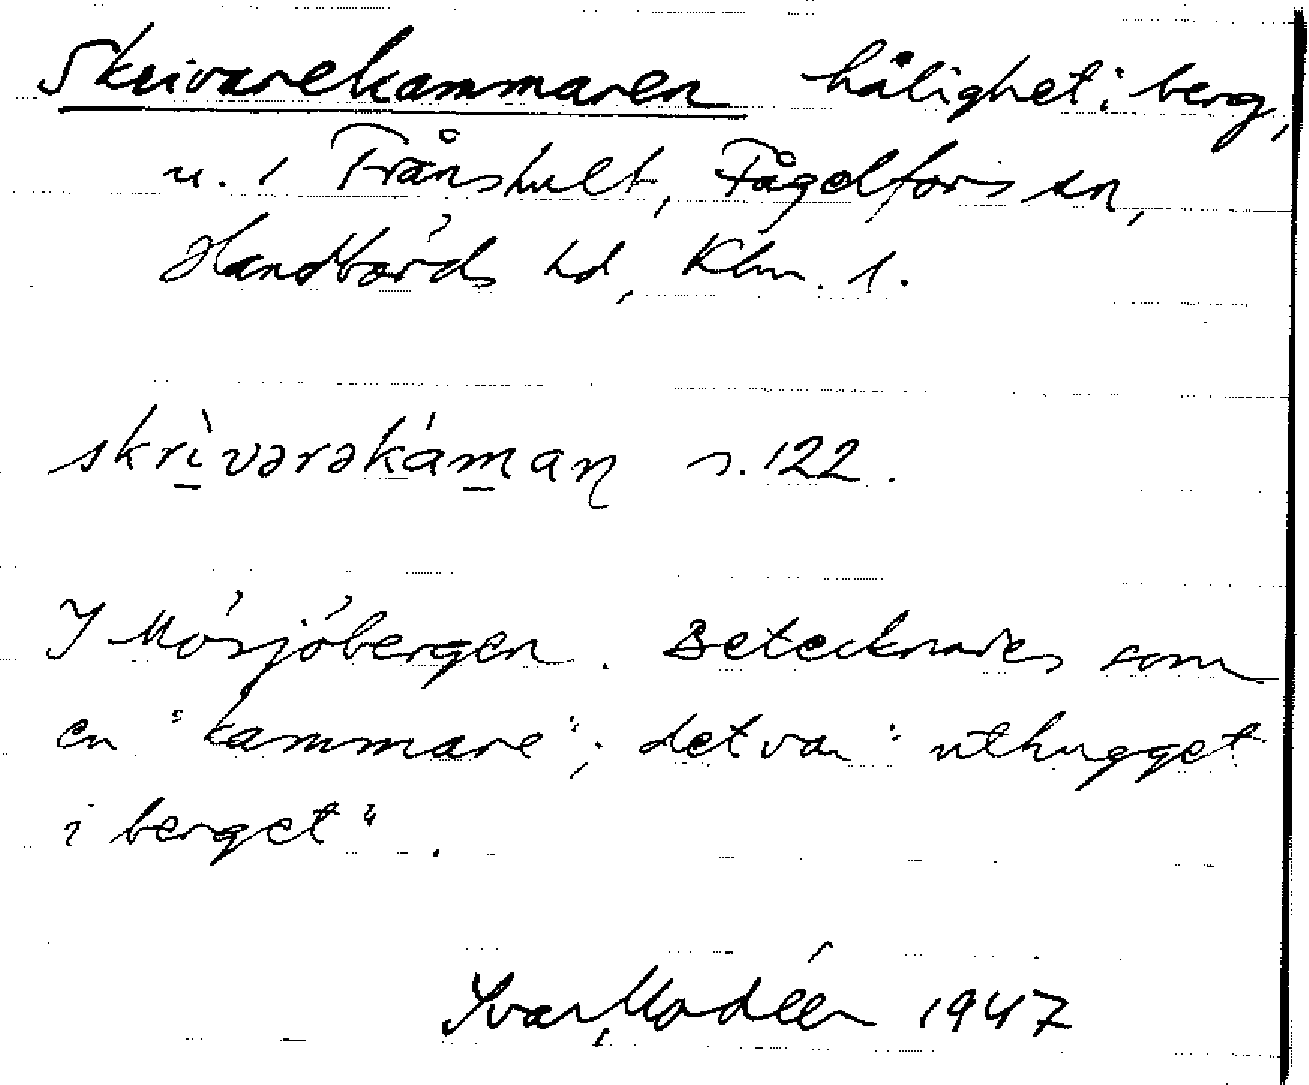 Skrivarekammaren hålighet i berg,
u. 1 Frånshult, Fågelfors sn,
Handbörds hd, Klm. l.
skrìvərəkáman s. 122.
I Mösjöbergen. Betecknades som
en "kammare"; det var "uthugget
i berget".
Ivar Modéer 1947